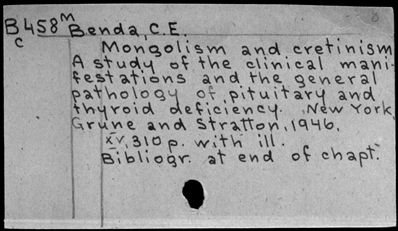 B458M Benda, C.E.
C
Mongolism and cretinism
A study of the clinical mani-
festations and the general
pathology of pituitary and
thyroid deficiency. New York,
Grune and Stratton, 1946.
XV, 310 p. with ill.
Bibliogr. at end of chapt.